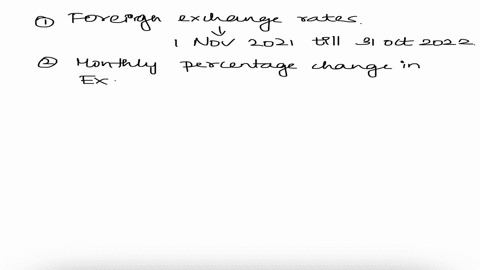 ① Foreign exchange rates.
1 Nov 2021 till 31 oct 2022
② Monthly percentage change in
Ex.